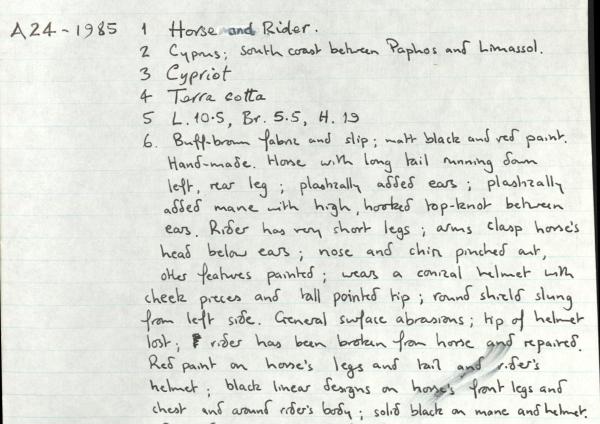 A24-1985 1 Horse and Rider.
2 Cyprus; south coast between Paphos and Limassol.
3 Cypriot
4 Terra cotta
5 L. 10.5, Br. 5.5, H. 19
6. Buff-brown fabric and slip; matt black and red paint.
Hand-made. Horse with long tail running down
left, rear leg; plastically added ears; plastically
added mane with high, hooked top-knot between
ears. Rider has very short legs; arms clasp horse's
head below ears; nose and chin pinched out,
other features painted; wears a conical helmet with
cheek pieces and tall pointed tip; round shield slung
from left side. General surface abrasions; tip of helmet
lost; rider has been broken from horse and repaired.
Red paint on horse's legs and tail and rider's
helmet; black linear designs on horse's front legs and
chest and around rider's body; solid black on mane and helmet.